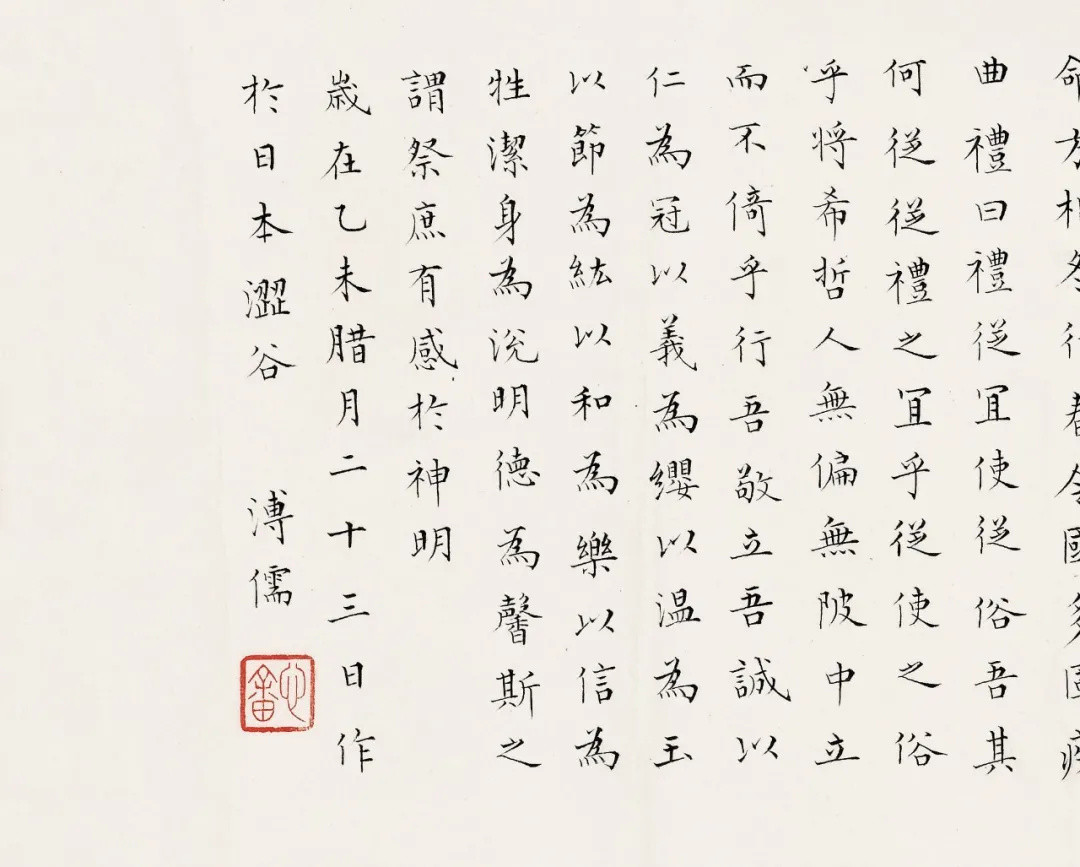 命方相冬行春令國多固疾
曲禮曰禮從冝使從俗吾其
何從從禮之冝乎從使之俗
乎將希哲人無偏無陂中立
而不倚乎行吾敬立吾誠以
仁為冠以義為纓以温為玉
以節為紘以和為樂以信為
牲潔身為涗明德為馨斯之
謂祭庶有感於神明
歲在乙未腊月二十三日作
於日本澀谷 溥儒
心畬